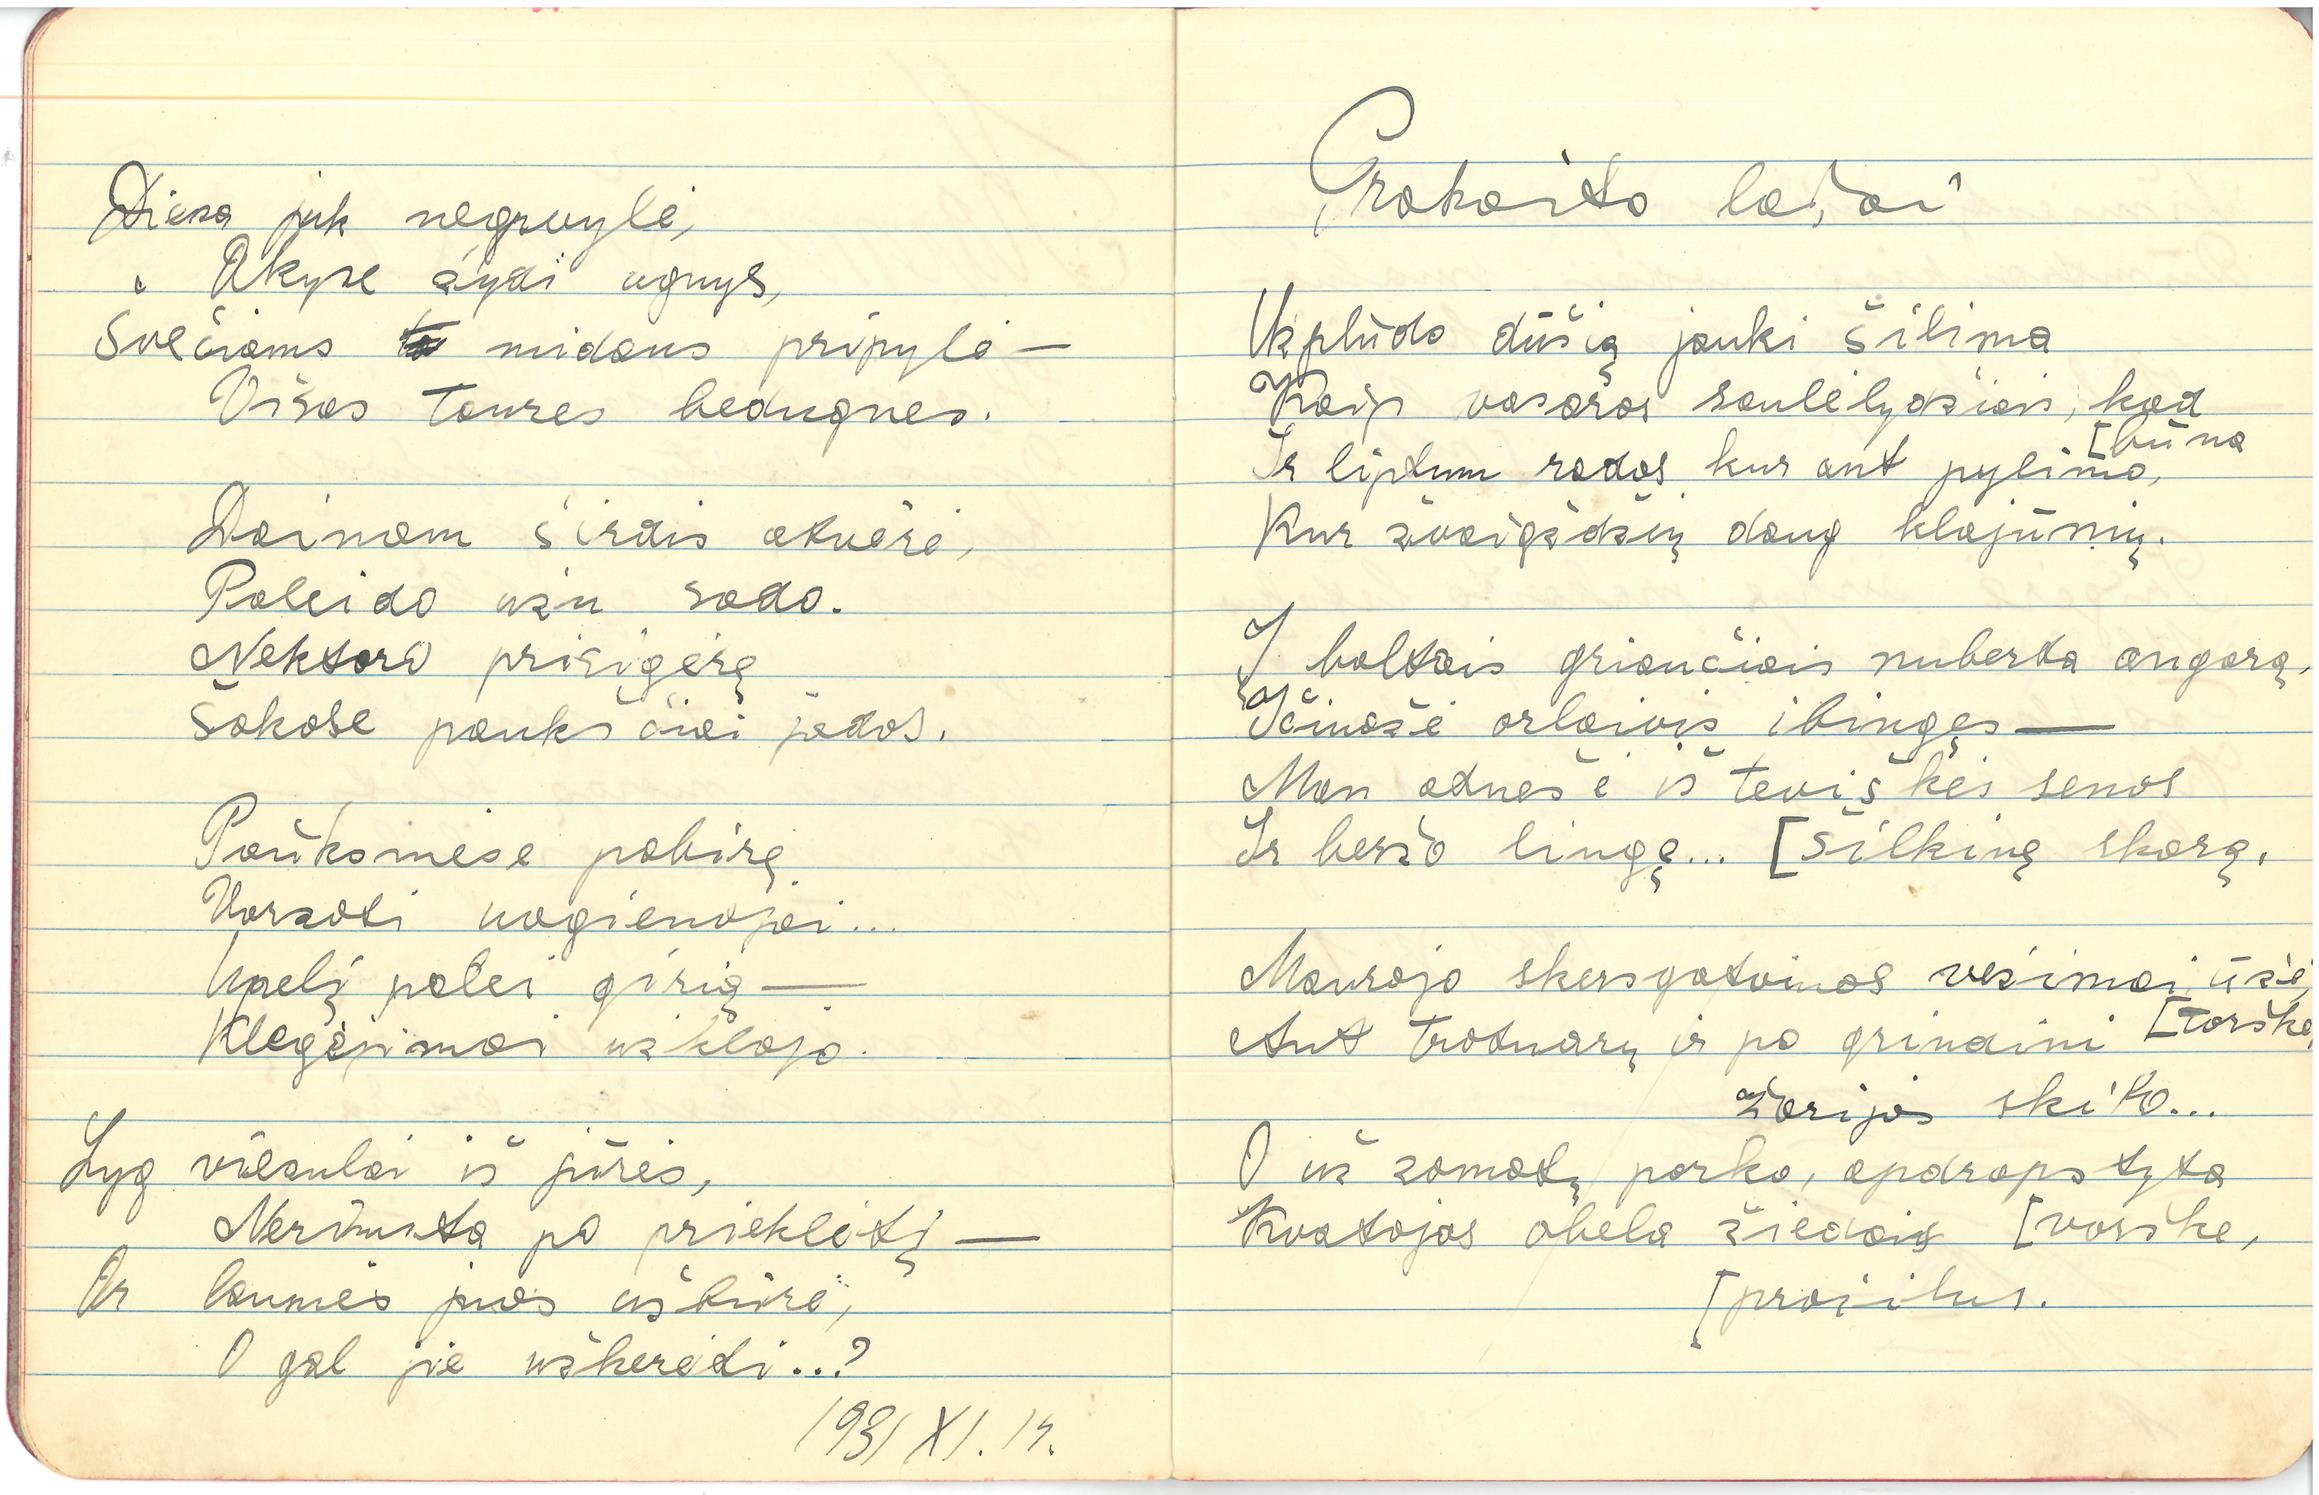 Diena juk negrvylė,
Akyse žydi ugnys,
Svečiams midaus pripylė —
Visas taures bedugnes.
Dainom širdis atvėrė,
Paleido užu sodo.
Nektaro prisigėrę
Šokose paukščiai juodos.
Paūksmėse pabirę
Varzoti nogienojai...
Upelį palei girią —
Klegėjimai užklojo.
Lyg viesulai iš jūrės,
Nerimsta po prieklėtį —
Ar laumės juos užkūrė,
O gal jie užkerėti...?
1931 XI. 14.
Prakaito lašai
Užplūdo dūšią jauki šilima
Kaip vasaros saulėlydžiais, kad
[būna
Ir liptum rodos kur ant pylimo,
Kur žvaigždžių daug klajūnių.
Į baltais griaučiais nuberta angarą,
Įčiuožė orlaivis išingęs —
Man atnešė iš tėviškės senos
Ir beržo lingę... [šilkinę skarą.
Maurojo skersgatvinos vežimai, ūžė,
Ant trotuarų ir po grindini [tarške
žarijos skilo...
O už zomatų parko, apdrapstyta
Kvatojos obela žiedais [varške,
[prašilus.